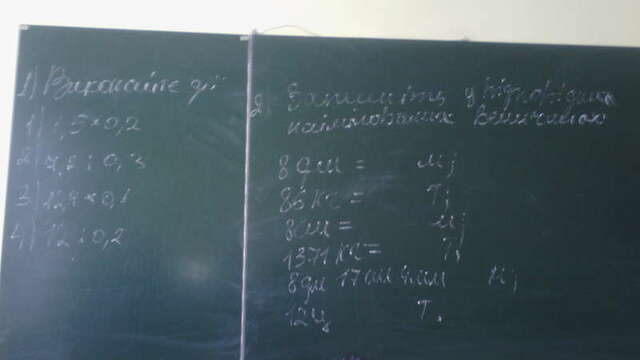 1) Виконайте дії
1) 1,5 × 0,2
2) 7,2 : 0,3
3) 12,9 × 0,1
4) 12 : 0,2
2) Запишіть у відповідних
найменованих величинах
8 дм = м;
86 кг = т;
8 см = м;
1371 кг = т;
8 дм 17 см 4 мм м;
12 ц т.